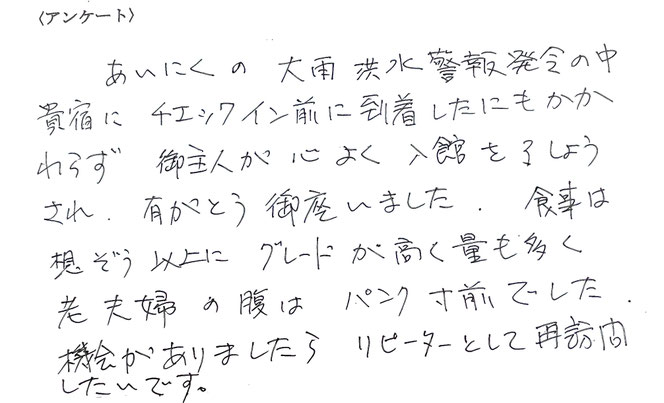 〈アンケート〉
あいにくの 大雨 洪水警報発令の中
貴宿に チエックイン前に到着したにもかか
わらず 御主人が 心よく 入館を了しょう
され. 有がとう御座いました. 食事は
想ぞう以上に グレードが高く量も多く
老夫婦の腹は パンク寸前でした.
機会がありましたら リピーターとして再訪問
したいです。